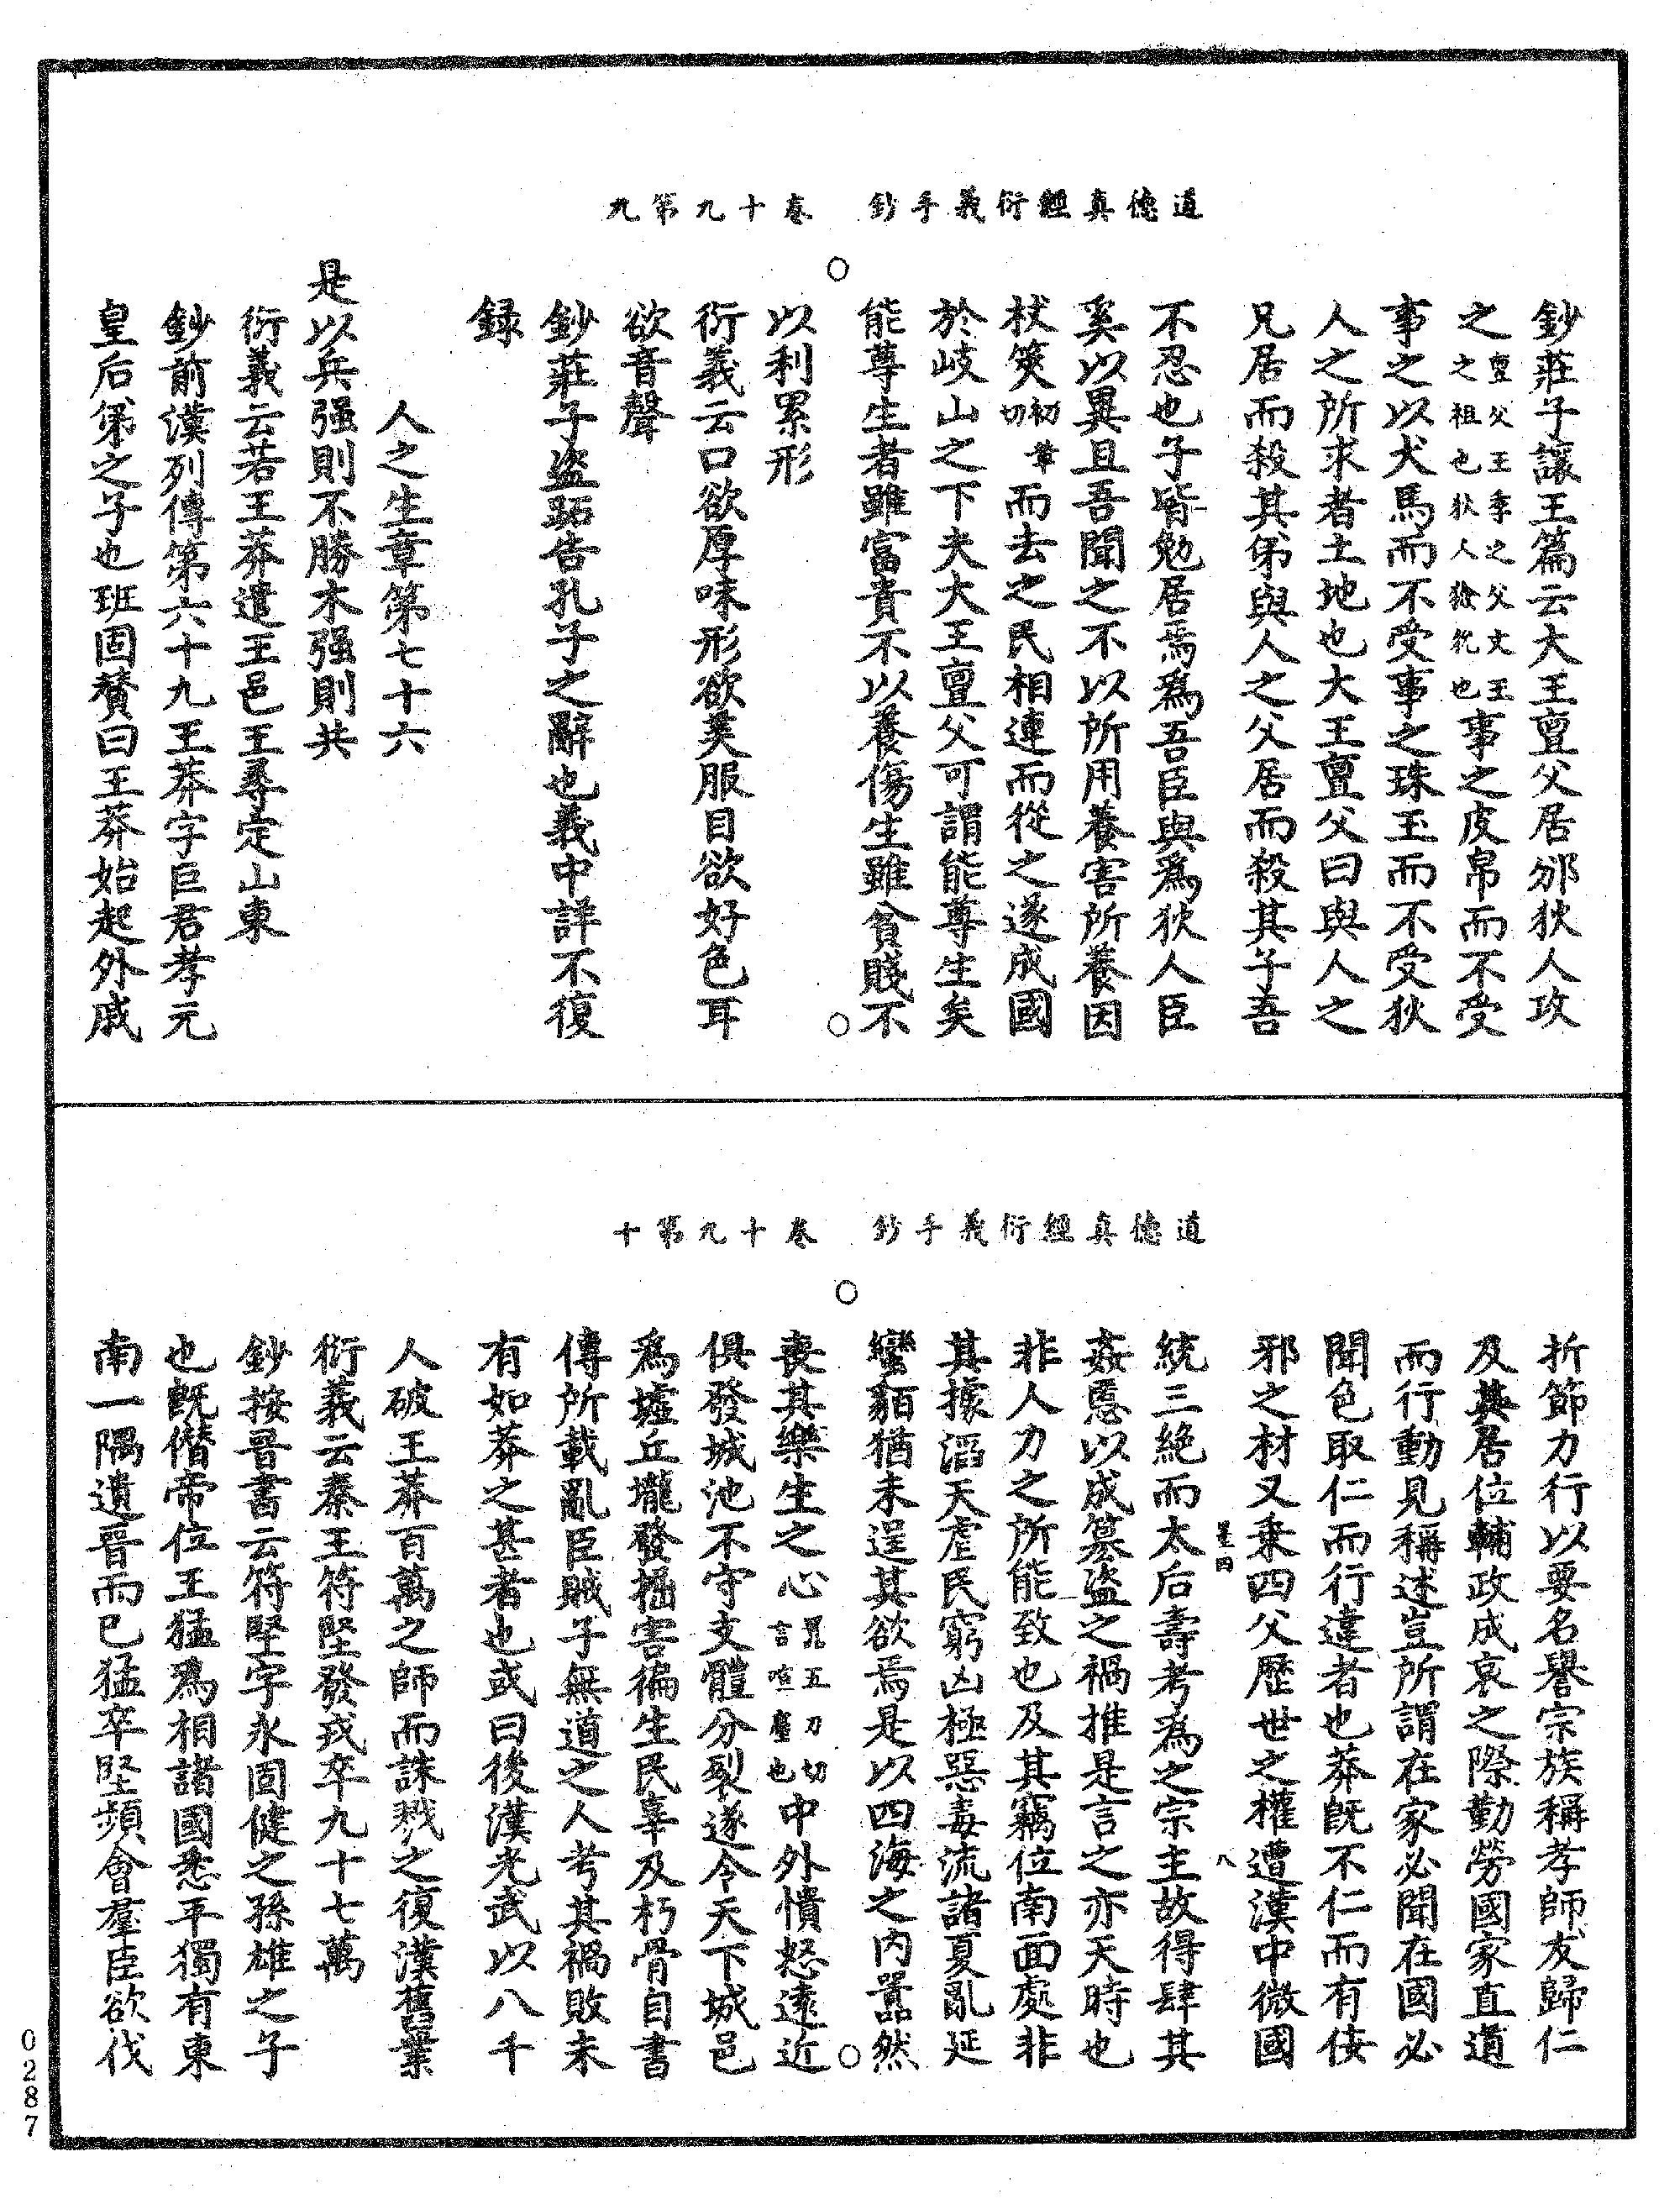 道德真經衍義手鈔　卷十九第九
鈔莊子讓王篇云大王亶父居邠狄人攻
之亶父王季之父文王之祖也狄人獫狁也事之皮帛而不受
事之以犬馬而不受事之珠玉而不受狄
人之所求者土地也大王亶父曰與人之
兄居而殺其弟與人之父居而殺其子吾
不忍也子皆勉居焉為吾臣與為狄人臣
奚以異且吾聞之不以所用養害所養因
杖筴初革切而去之民相連而從之遂成國
於岐山之下夫大王亶父可謂能尊生矣
能尊生者雖富貴不以養傷生雖貧賤不
以利累形
衍義云口欲厚味形欲美服目欲好色耳
欲音聲
鈔莊子盜跖告孔子之辭也義中詳不復
録
人之生章第七十六
是以兵强則不勝木强則共
衍義云若王莽遣王邑王尋定山東
鈔前漢列傳第六十九王莽字巨君孝元
皇后弟之子也班固贊曰王莽始起外戚
道德真經衍義手鈔　卷十九第十
折節力行以要名譽宗族稱孝師友歸仁
及其居位輔政成哀之際勤勞國家直道
而行動見稱述豈所謂在家必聞在國必
聞色取仁而行違者也莽既不仁而有佞
邪之材又乘四父歷世之權遭漢中微國
八
統三絶而太后壽考為之宗主故得肆其
姦慝以成篡盜之禍推是言之亦天時也
非人力之所能致也及其竊位南面處非
其據滔天虐民窮凶極惡毒流諸夏亂延
蠻貊猶未逞其欲焉是以四海之内囂然
喪其樂生之心囂五刀切言喧也中外憤怒遠近
俱發城池不守支體分裂遂令天下城邑
為墟丘壠發掘害徧生民辜及朽骨自書
傳所載亂臣賊子無道之人考其禍敗未
有如莽之甚者也或曰後漢光武以八千
人破王莽百萬之師而誅戮之復漢舊業
衍義云秦王符堅發戎卒九十七萬
鈔按晉書云符堅字永固健之孫雄之子
也既僭帝位王猛為相諸國悉平獨有東
南一隅遺晉而已猛卒堅頻會羣臣欲伐
0287